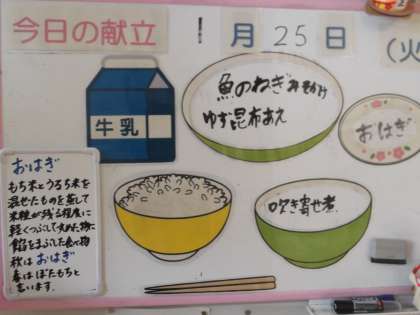 今日の献立
月 25 日 (火
牛乳
魚のねぎみそかけ
ゆず昆布あえ
おはぎ
吹き寄せ煮
おはぎ
もち米とうるち米を
混ぜたものを蒸して
米粒が残る程度に
軽くつぶして丸めた物に
餡をまぶした食べ物
秋はおはぎ
春はぼたもちと
言います。